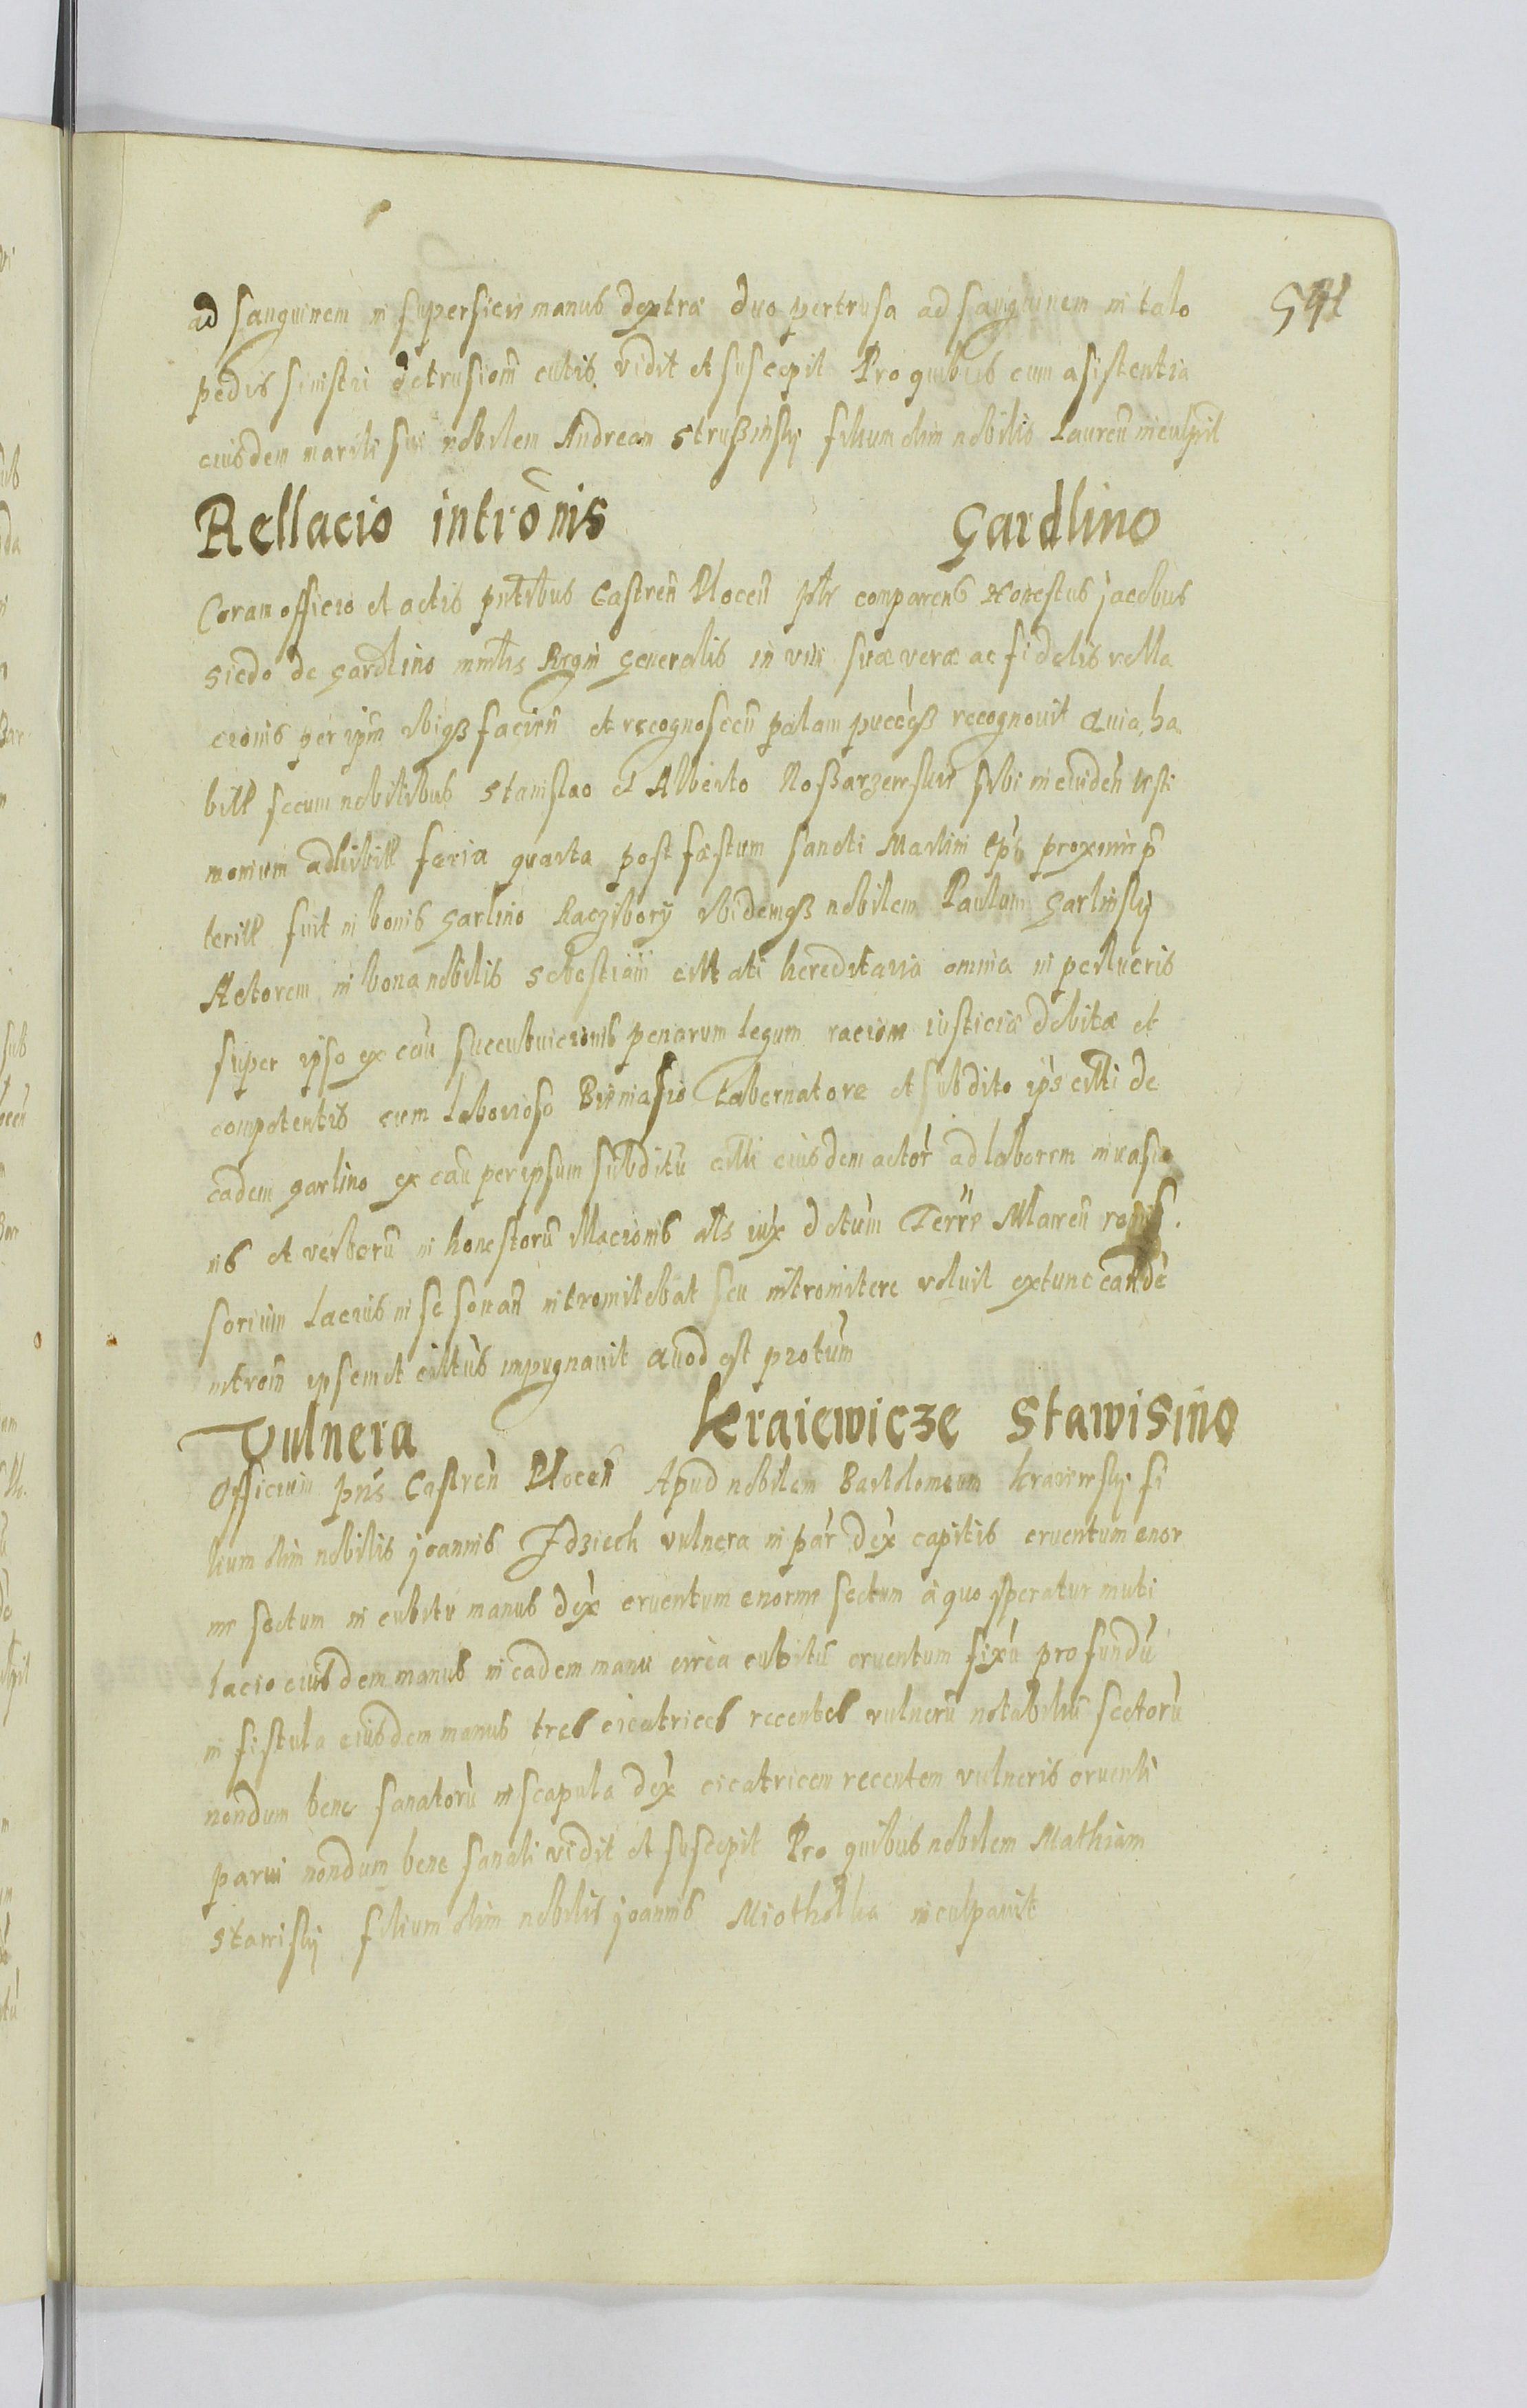 541
ad sanguinem in superficii manus dextræ duo pertrusa ad sanguinem in talo
pedis sinistri detrusionē cutis vidit et suscepit Pro quibus cum asistentia
eiusdem mariti sui nobilem Andream Strußinsky filium olim nobilis Laurēn inculpāt
Rellacio intrōnis Gardlino
Coram officio et actis pn̄tibus Castren̄ Plocen̄ pl̄r comparens Honestus jacobus
siedo de gardlino mn̄lis Regni generalis in vim suæ veræ ac fidelis rella
cionis per ipm̄ ibiqß facien̄ et recognoscen̄ palam recognouit Quia, ha
bitt secum nobilibus Stanislao et Alberto sibi in euiden̄ testi
monium adhibitt feria quarta post fæstum sancti Martini Ep̄i proxime p̄
teritt fuit in bonis garlino Raczibory ibidemqß nobilem Paulum garlinsky
Actorem in bona nobilis Sebestiani citati hereditaria omnia in pertneris
super ipso ex caū succubuicionis penarum legum racione iusticiæ debitæ et
competentis cum laborioso Tabernatore et subdito ip̄s citti de
eadem garlino ex caū per ipsum subditū citti eiusdem actor̄ ad laborem inuasio
nis et verberū in honestorū illacionis al̄s iux̄ dctūm Terre
sorium lacius in se sonan̄ intromitebat seu intromitere voluit extunc eandē
introm̄ ipsemet cittūs inpugnauit Quod est protūm
Vulnera Kraiewicze Stawisino
Officium pn̄s Castren̄ Plocen̄ Apud nobilem Bartolomeum kraiewsky fi
lium olim nobilis joannis Jdziech vulnera in pār dex̄ capitis cruentum enor
me sectum in cubitu manus dex̄ cruentum enorme sectum à quo speratur muti
lacio eiusdem manus in eadem manu circa cubitū cruentum fixū profundū
in fistula eiusdem manus tres cicatrices recentes vulnerū notabiliū sectorū
nondum bene sanatorū in scapula dex̄ cicatricem recentem vulneris cruenti
parui nondum bene sanati vidit et suscepit Pro quibus nobilem Mathiam
Stawisky filium olim nobilis joannis Miotholka inculpauit